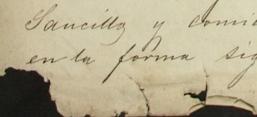 Sancilla y comi
en la forma sig